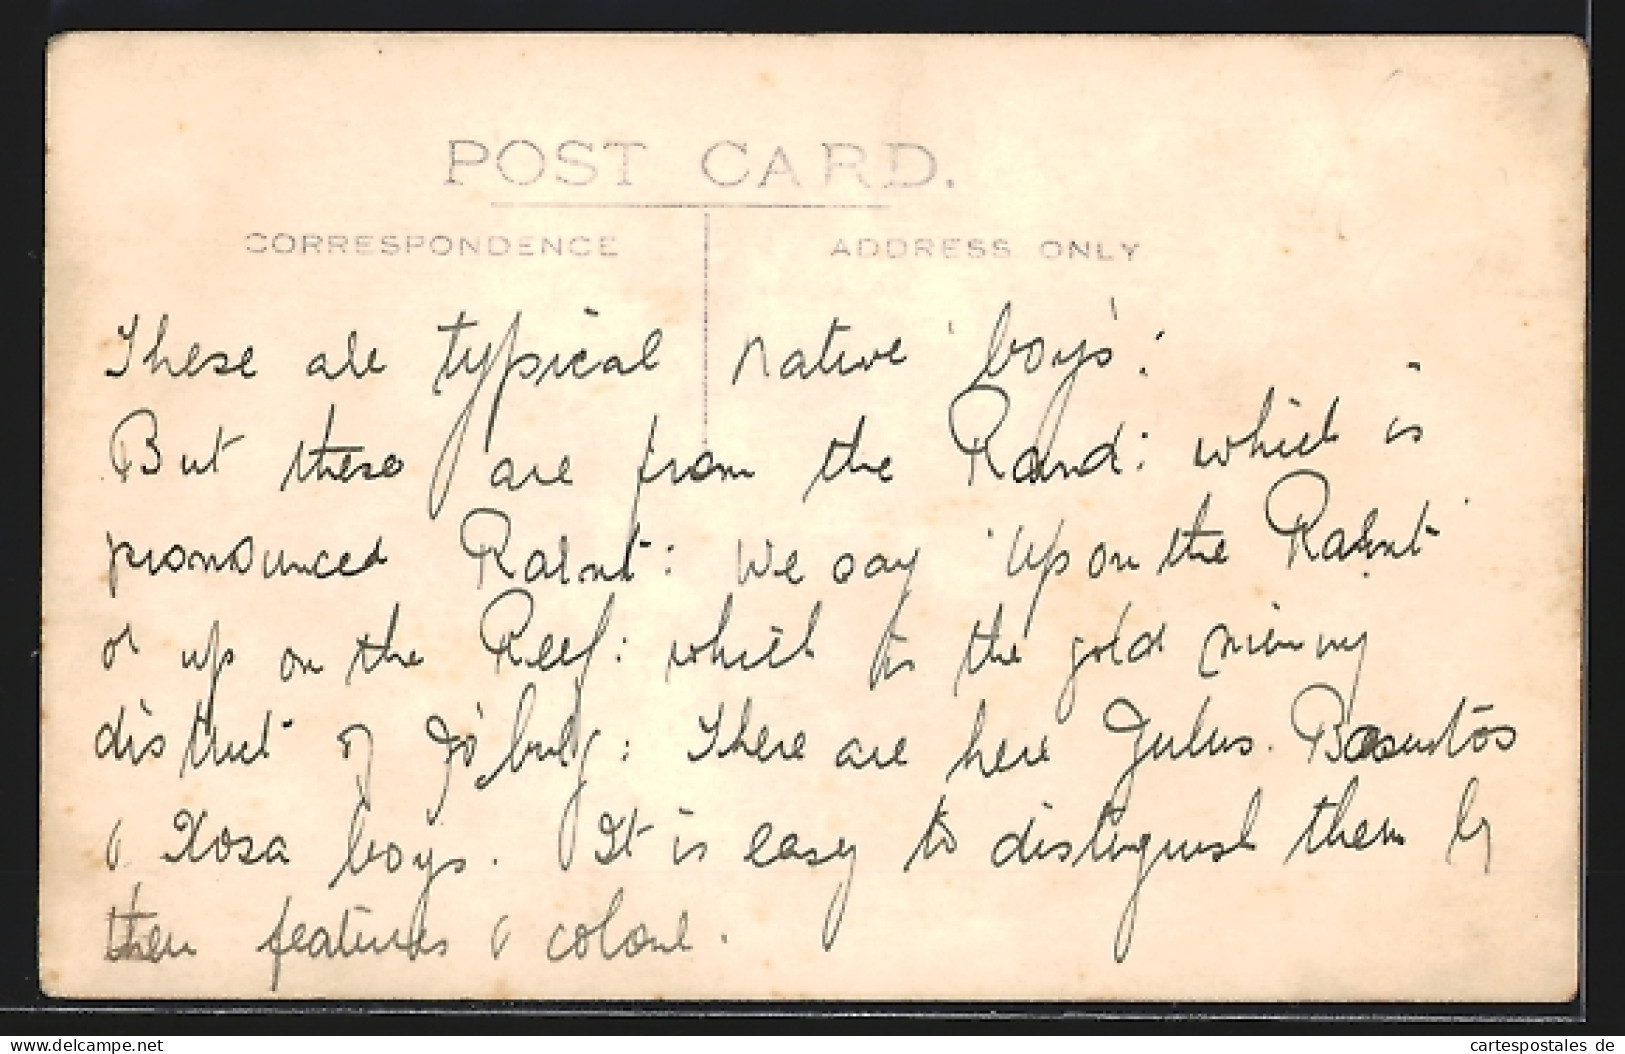 POST CARD.
CORRESPONDENCE ADDRESS ONLY
These are typical native 'boys':
But these are from the Rand: which is
pronounced Rahnt: We say 'Up on the Rahnt'
or up on the Reef: which is the gold mining
district of Jo'burg: There are here Zulus. Basutos
& Xosa boys. It is easy to distinguish them by
their features & colour.
delcampe.net
cartespostales de